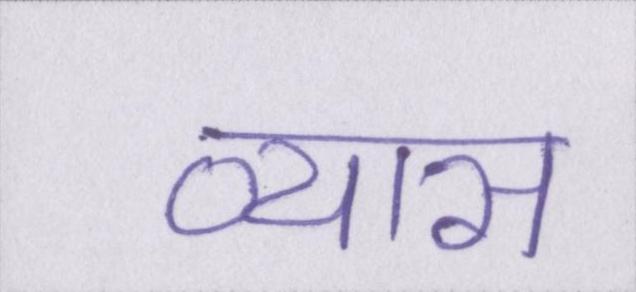 व्यास